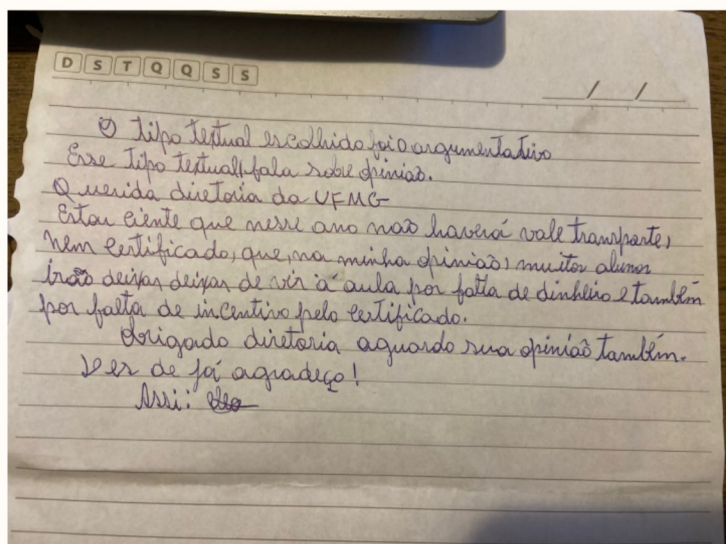 D S T Q Q S S
/ /
O tipo textual escolhido foi o argumentativo
Esse tipo textual fala sobre opinião.
Querida diretoria da UFMG
Estou ciente que nesse ano não haverá vale transporte,
nem certificado, que, na minha opinião, muitos alunos
irão deixar deixar de vir à aula por falta de dinheiro e também
por falta de incentivo pelo certificado.
Obrigado diretoria aguardo sua opinião também.
Des de já agradeço!
Assi: